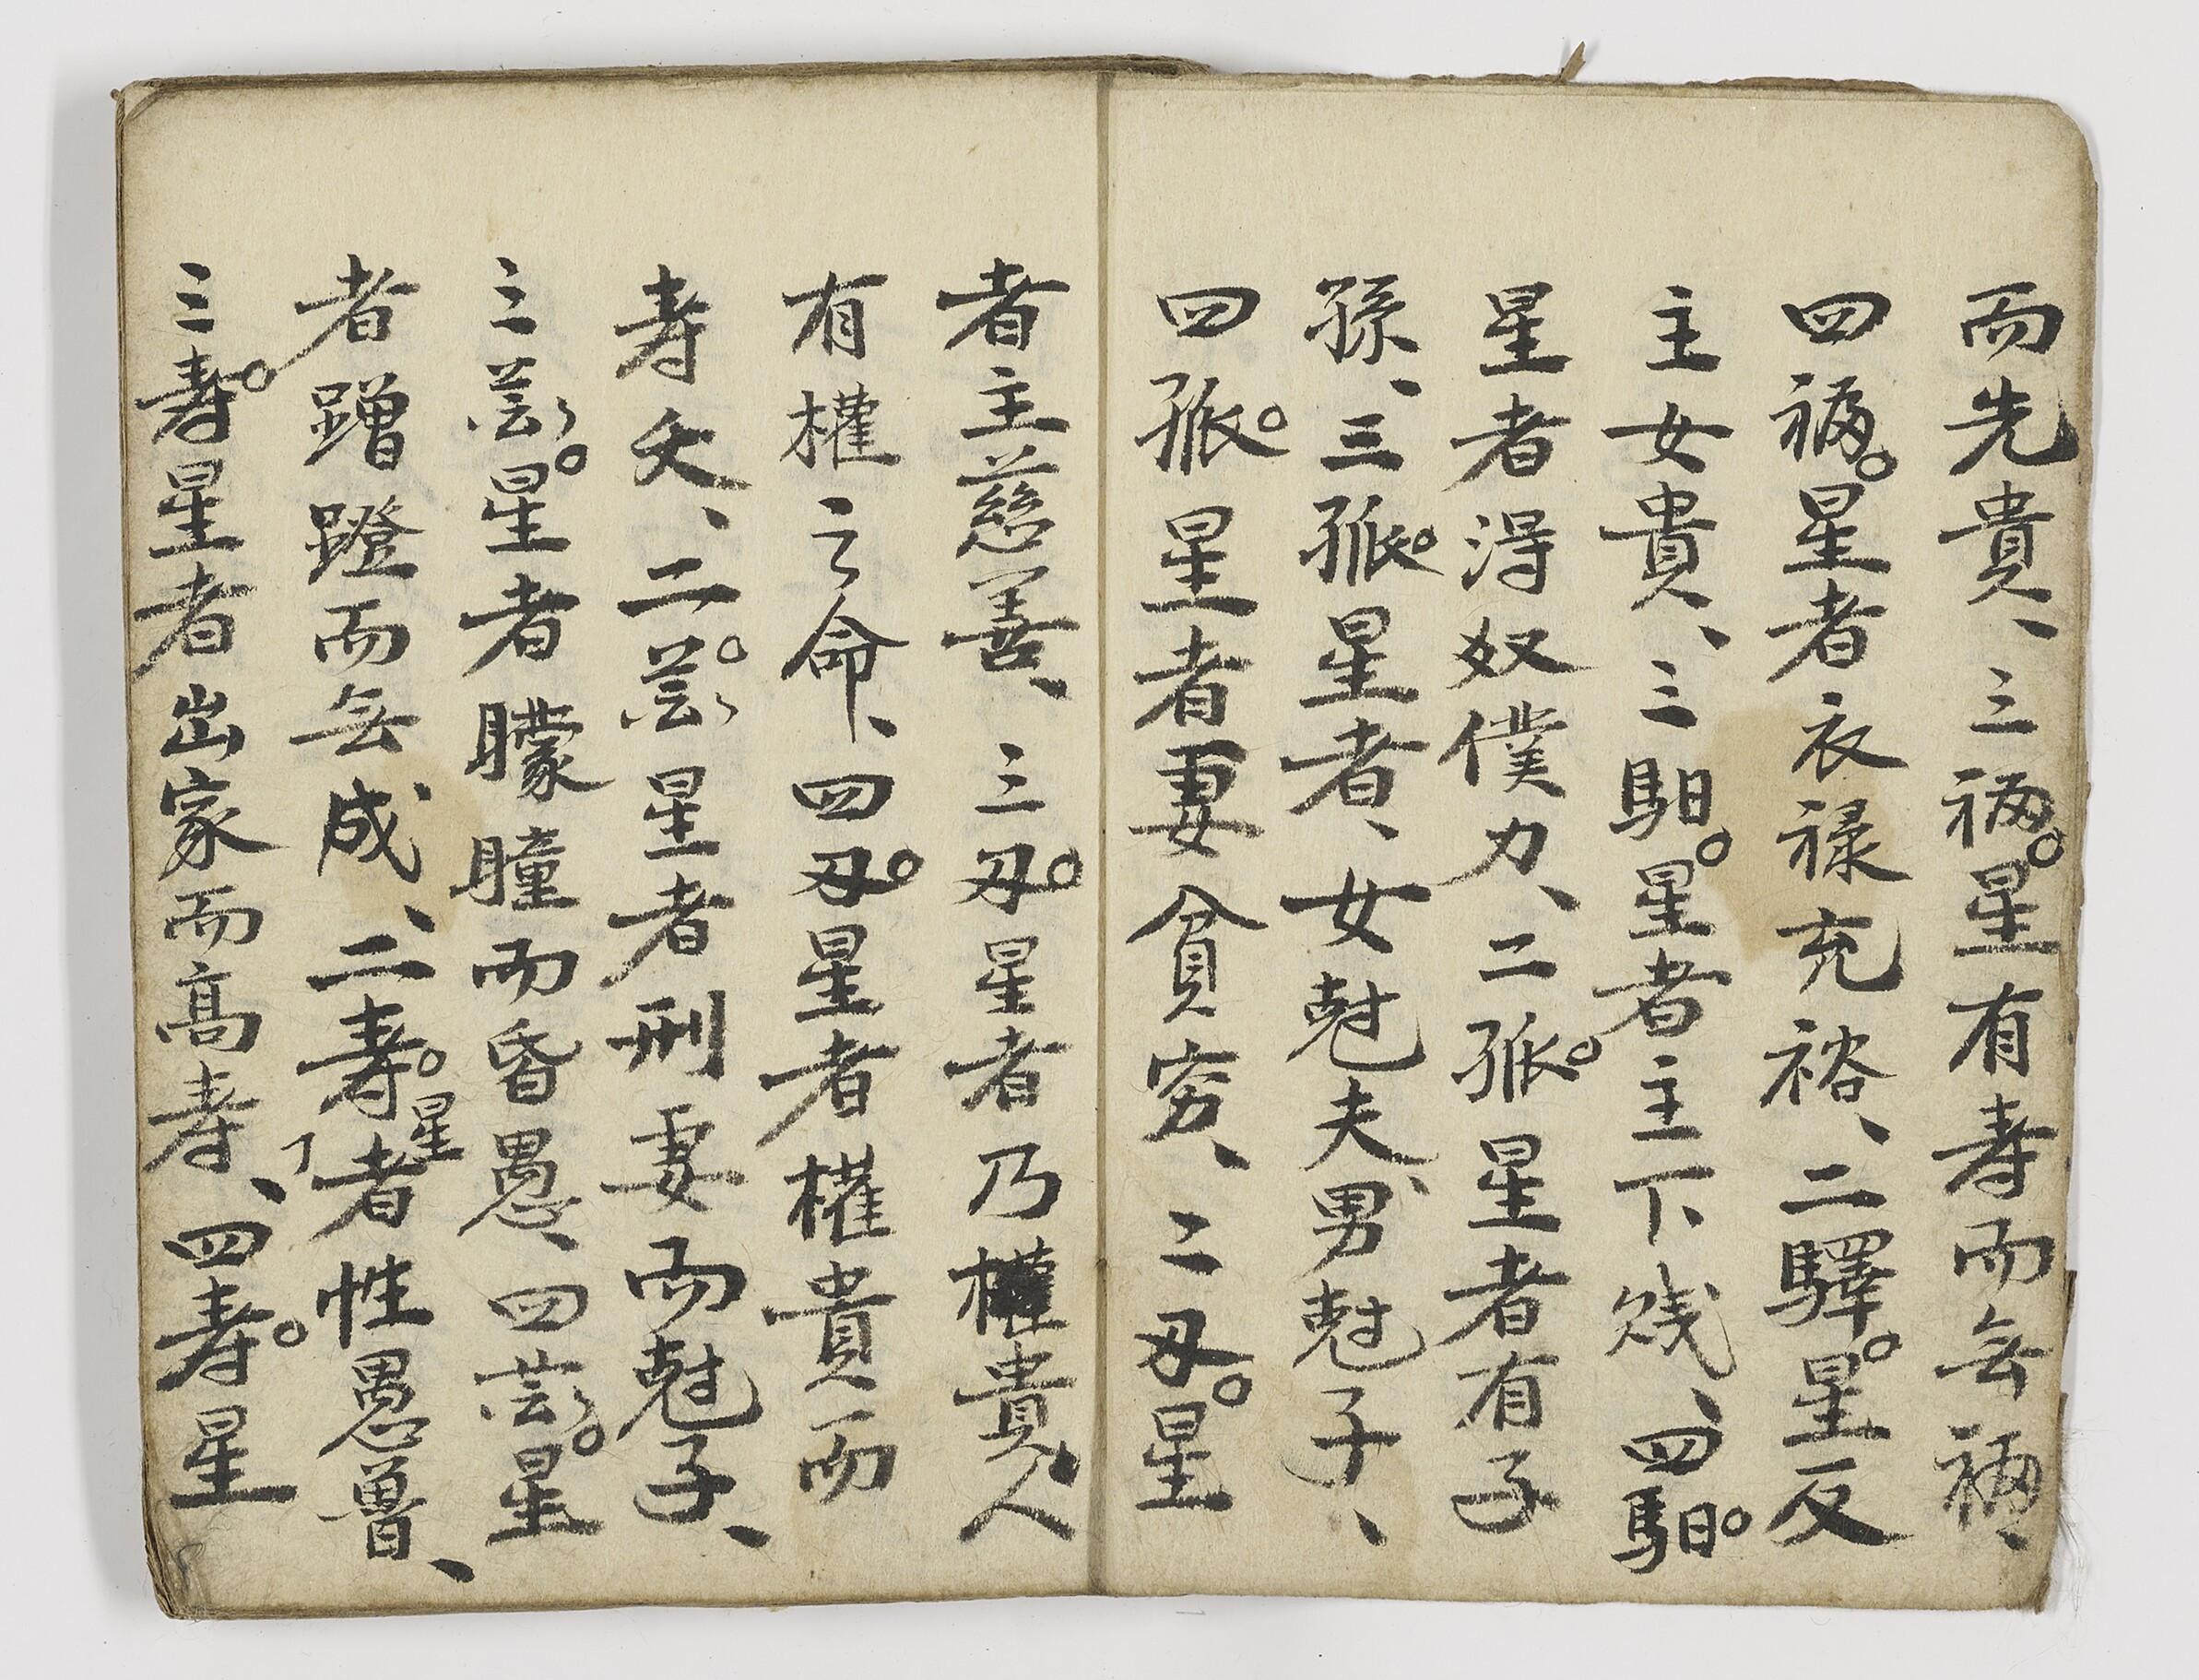 而先貴、三福。星有寿而無福、
四福。星者衣禄充裕、二驛。星反
主女貴、三馹。星者主下賤、四馹。
星者得奴僕力、二孤。星者有子
孫、三孤。星者、女尅夫男尅子、
四孤。星者妻貧穷、二刃。星
者主慈善、三刃。星者乃權貴人
有權之命、四刃。星者權貴而
寿夭、二芸。星者刑妻而尅子、
三芸。星者矇瞳而昏愚、四芸。星
者蹭蹬而無成、二寿。星者性愚魯、
三寿。星者出家而高寿、四寿。星